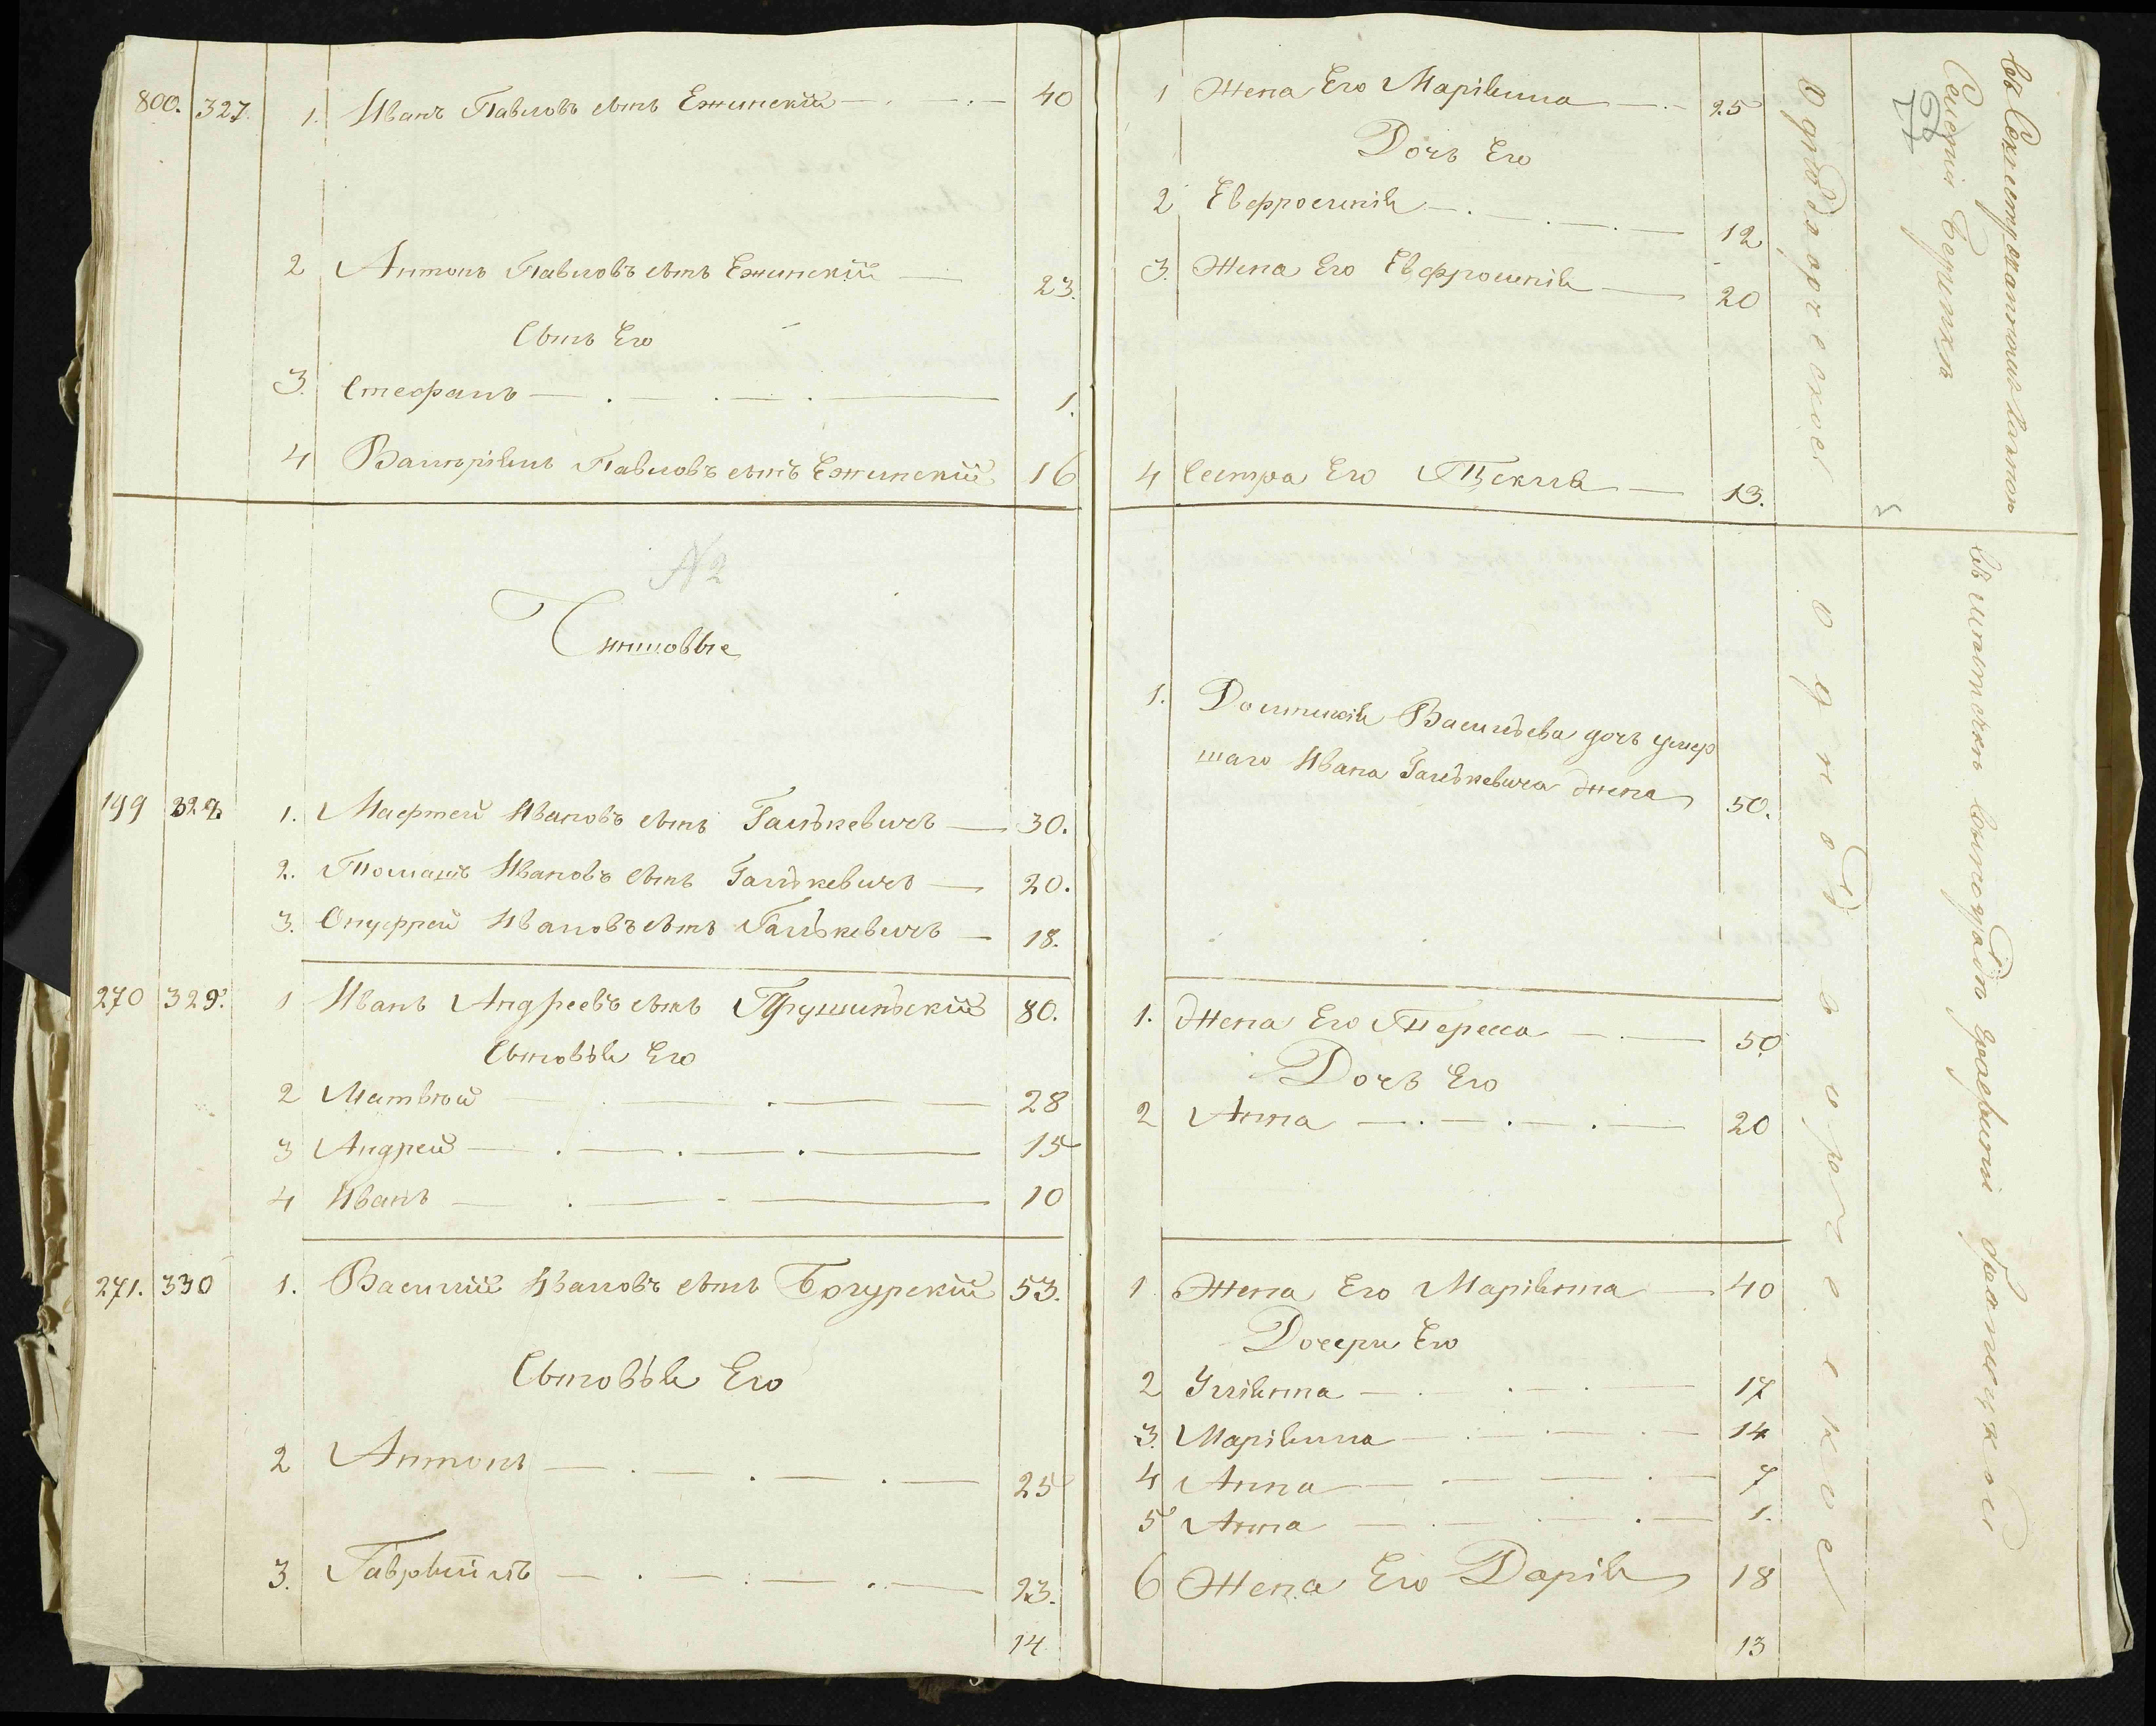 800. 327. 1. Иванъ Павловъ сынъ Ежинскій 40
2 Антонъ Павловъ сынъ Ежинскій 23.
Сынъ Его
3. Стефанъ 1.
4 Валерьянъ Павловъ сынъ Ежинскій 16
N 2
Чиншовые
199 328. 1. Мафтей Ивановъ сынъ Галькевичъ 30.
2. Томашъ Ивановъ сынъ Галькевичъ 20.
3. Онуфрей Ивановъ сынъ Галькевичъ 18.
270 329. 1 Иванъ Андреевъ сынъ Трушинскій 80.
Сыновья Его
2 Матвѣй 28
3 Андрей 15
4 Иванъ 10
271. 330 1. Василій Ивановъ сынъ Богурскій 53.
Сыновья Его
2 Антонъ 25
3. Гавріилъ 23.
14
1 Жена Его Маріянна 25
Дочь Его
2 Евфросинія 12
3. Жена Его Евфросинія 20
4 Сестра Его Текля 13.
1. Доминикія Васильева дочь умер
шаго Ивана Галькевича жена 50.
1. Жена Его Тересса 50
Дочь Его
2 Анна 20
1 Жена Его Маріянна 40
Дочери Его
2 Уліянна 17
3. Маріянна 14
4 Анна 7
5 Анна 1.
6 Жена Его Дарія 18
13
Однодворческое
однодворческое
Селенія
77